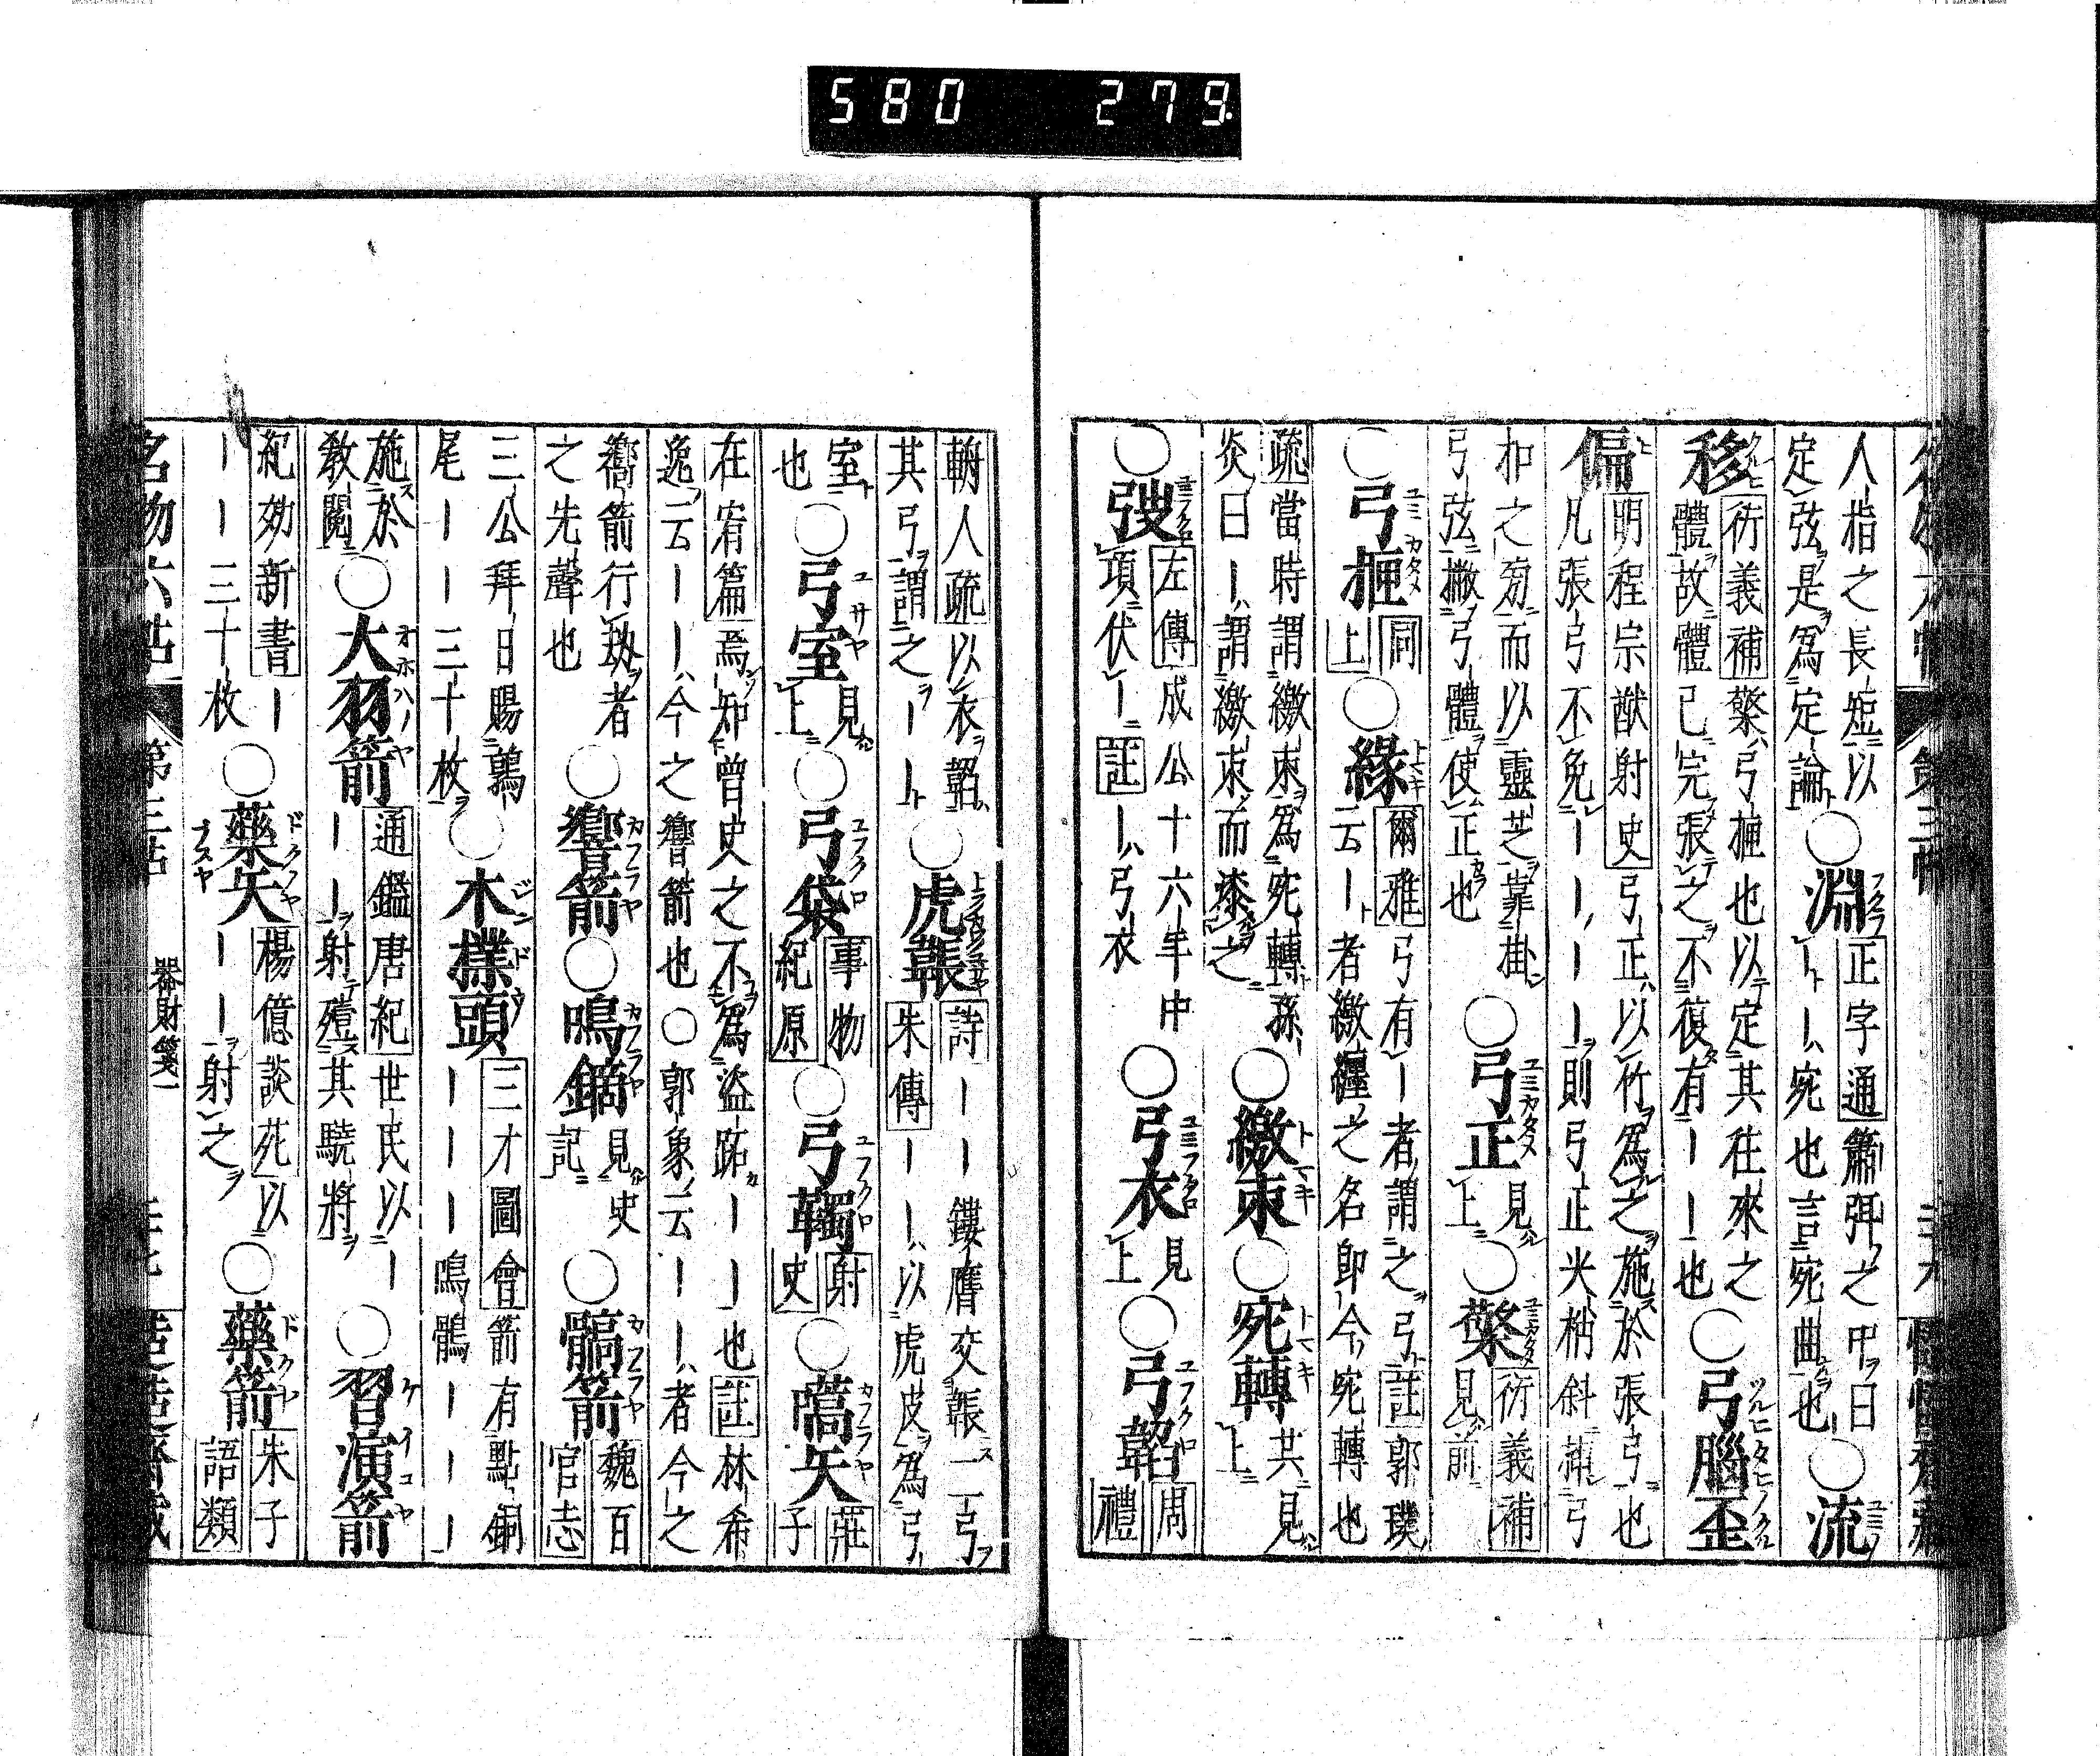 580 279
人指之長短以
定弦是爲定論○淵正字通簫弭之中曰
ーーー宛也言宛曲也○流
移衍義補檠弓𣙗也以定其往來之
體故體已完張之不復有ーー也○弓腦歪
偏明程宗猷射史弓正以竹爲之施於張弓也
凡張弓不免ーーーー則弓正夾梢斜插弓
和之芴而以靈芝靠掛
弓弦撇弓體使正也○弓正見上○檠衍義補見前
○弓𣙗同上○緣爾雅弓有ー者謂之弓註郭璞
云ー者繳纏之名卽今宛轉也
疏當時謂繳束爲宛轉孫
炎曰ー謂繳束而漆之○繳束○宛轉共見上
○弢左傳成公十六年中
項伏ー註ー弓衣○弓衣見上○弓韜周禮
輈人疏以衣韜
其弓謂之ーー○虎韔詩ーー鏤膺交韔二弓
朱傳ーー以虎皮爲弓
室也○弓室見上○弓袋事物紀原○弓韣射史○嚆矢莊子
在宥篇焉知曾史之不爲盜跖ーー也註林希
逸云ーー今之響箭也○郭象云ーー者今之
嚮箭行刼者
之先聲也○響箭○鳴鏑見史記○髇箭魏百官志
三公拜日賜鶉
尾ーー三十枚○木撲頭三才圖會箭有點銅
ーーーー鳴髇ーーー
施於
敎閱○大羽箭通鑑唐紀世民以ー
ーー射殪其驍將○習演箭
紀効新書ー
ーー三十枚○藥矢楊億談苑以
ーー射之○藥箭朱子語類
名物六帖 第三帖 器財箋一